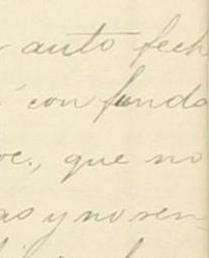 auto fech
con fundo
oc., que no
as y no ren-